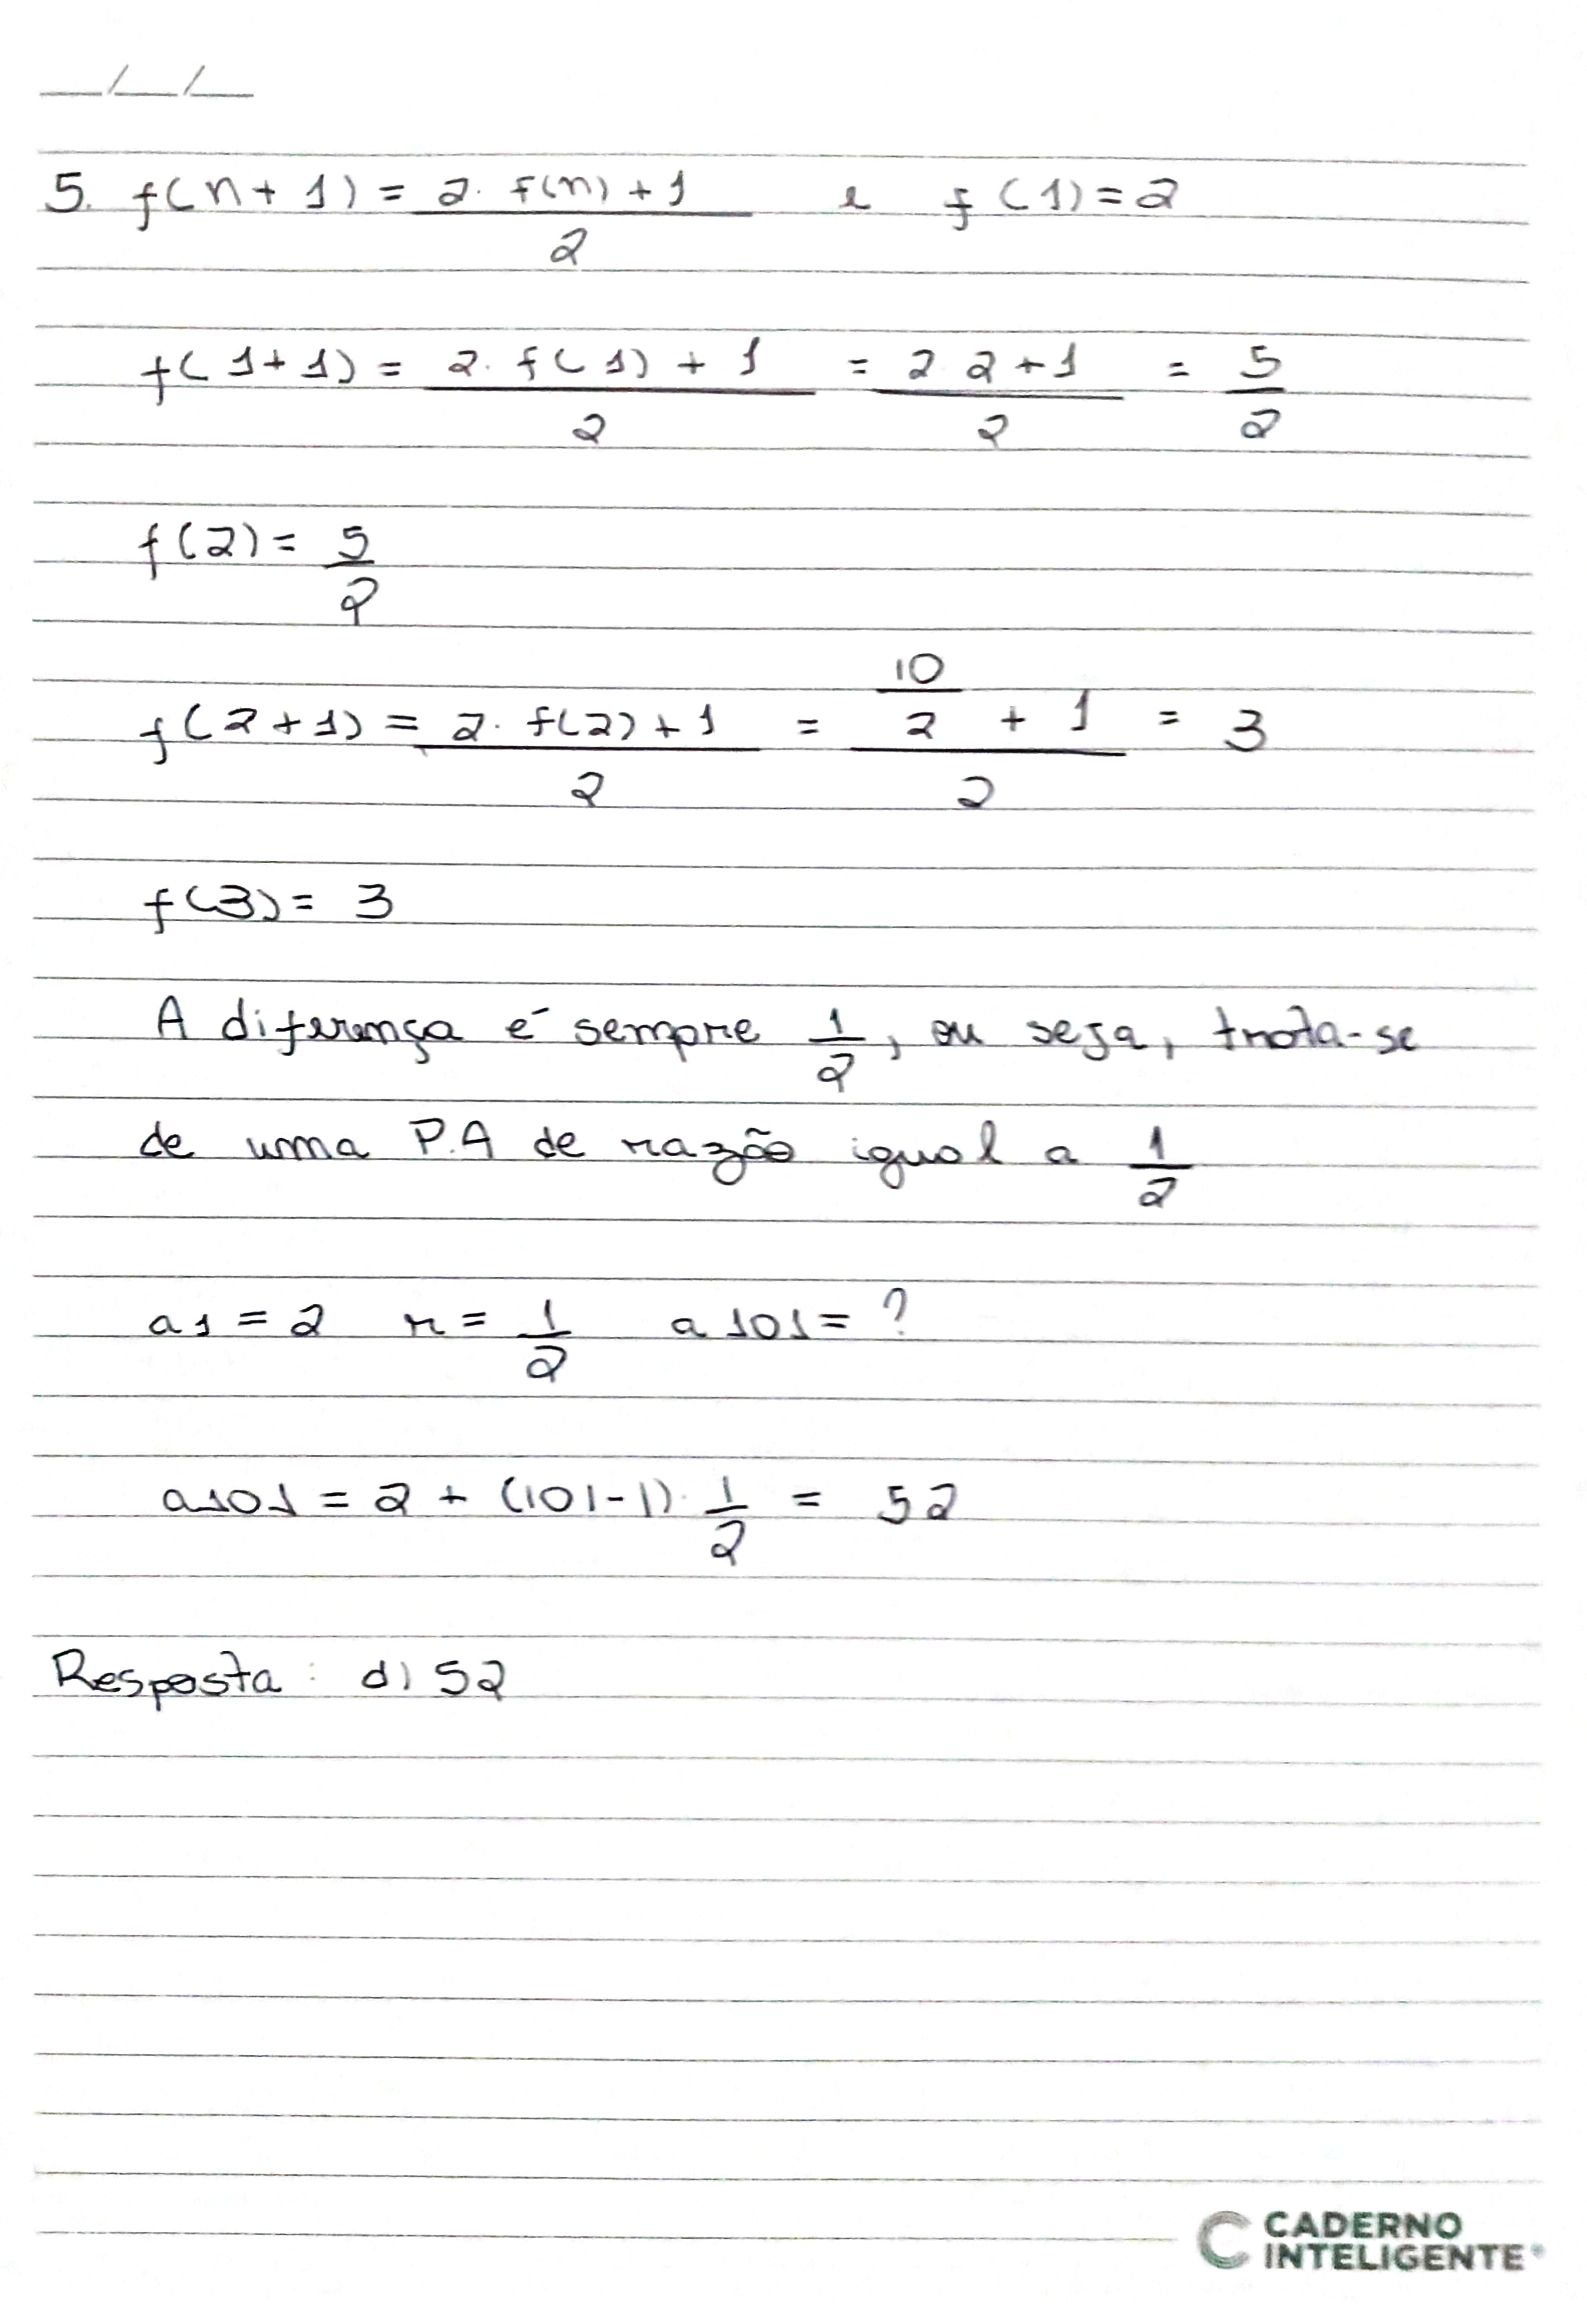 __/__/__
5. f(n+1) = 2. f(n)+1 / 2 e f(1)=2
f(1+1) = 2. f(1) + 1 / 2 = 2 2+1 / 2 = 5/2
f(2) = 5/2
f(2+1) = 2. f(2)+1 / 2 = 10/2 + 1 / 2 = 3
f(3) = 3
A diferença é sempre 1/2, ou seja, trata-se
de uma P.A de razão igual a 1/2
a1 = 2 r = 1/2 a101 = ?
a101 = 2 + (101-1). 1/2 = 52
Resposta: d) 52
CADERNO
INTELIGENTE